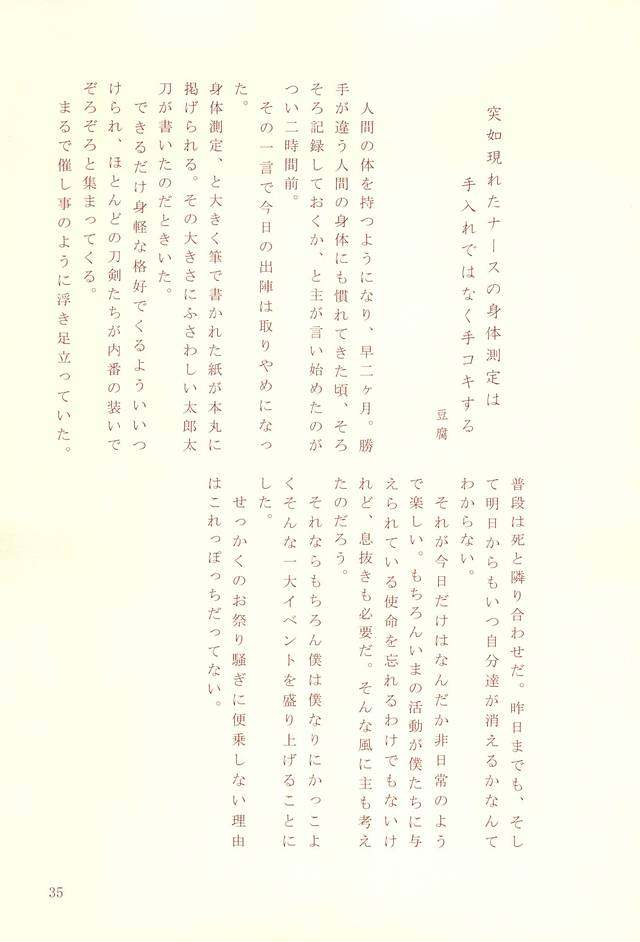 突如現れたナースの身体測定は
手入れではなく手コキする
豆腐
人間の体を持つようになり、早二ヶ月。勝
手が違う人間の身体にも慣れてきた頃、そろ
そろ記録しておくか、と主が言い始めたのが
つい二時間前。
その一言で今日の出陣は取りやめになっ
た。
身体測定、と大きく筆で書かれた紙が本丸に
掲げられる。その大きさにふさわしい太郎太
刀が書いたのだときいた。
できるだけ身軽な格好でくるよういいつ
けられ、ほとんどの刀剣たちが内番の装いで
ぞろぞろと集まってくる。
まるで催し事のように浮き足立っていた。
普段は死と隣り合わせだ。昨日までも、そし
て明日からもいつ自分達が消えるかなんて
わからない。
それが今日だけはなんだか非日常のよう
で楽しい。もちろんいまの活動が僕たちに与
えられている使命を忘れるわけでもないけ
れど、息抜きも必要だ。そんな風に主も考え
たのだろう。
それならもちろん僕は僕なりにかっこよ
くそんな一大イベントを盛り上げることに
した。
せっかくのお祭り騒ぎに便乗しない理由
はこれっぽっちだってない。
35